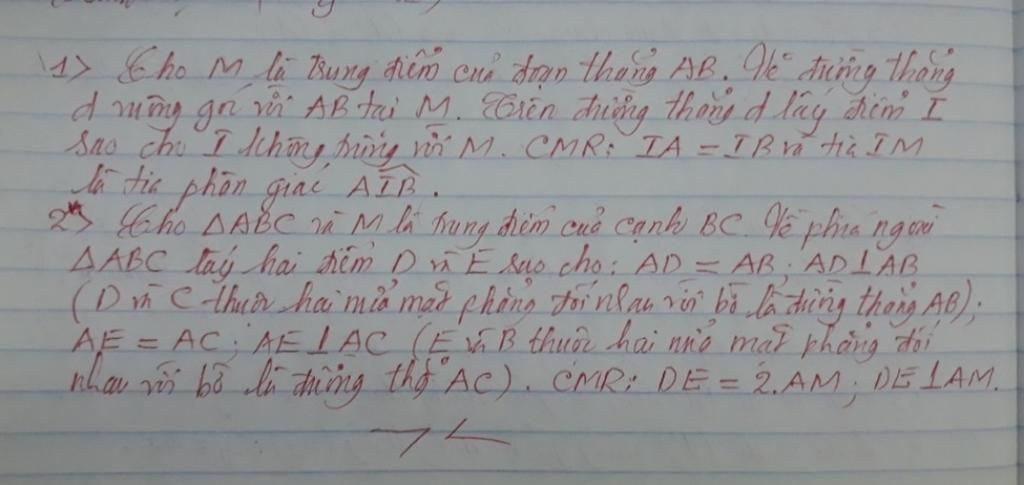 1> Cho M là trung điểm của đoạn thẳng AB. Vẽ đường thẳng
d vuông góc với AB tại M. Trên đường thẳng d lấy điểm I
sao cho I không trùng với M. CMR: IA = IB và tia IM
là tia phân giác AIB.
2> Cho ΔABC và M là trung điểm của cạnh BC. Về phía ngoài
ΔABC lấy hai điểm D và E sao cho: AD = AB; AD⊥AB
(D và C thuộc hai nửa mặt phẳng đối nhau với bờ là đường thẳng AB);
AE = AC; AE⊥AC (E và B thuộc hai nửa mặt phẳng đối
nhau với bờ là đường thg AC). CMR: DE = 2.AM; DE⊥AM.